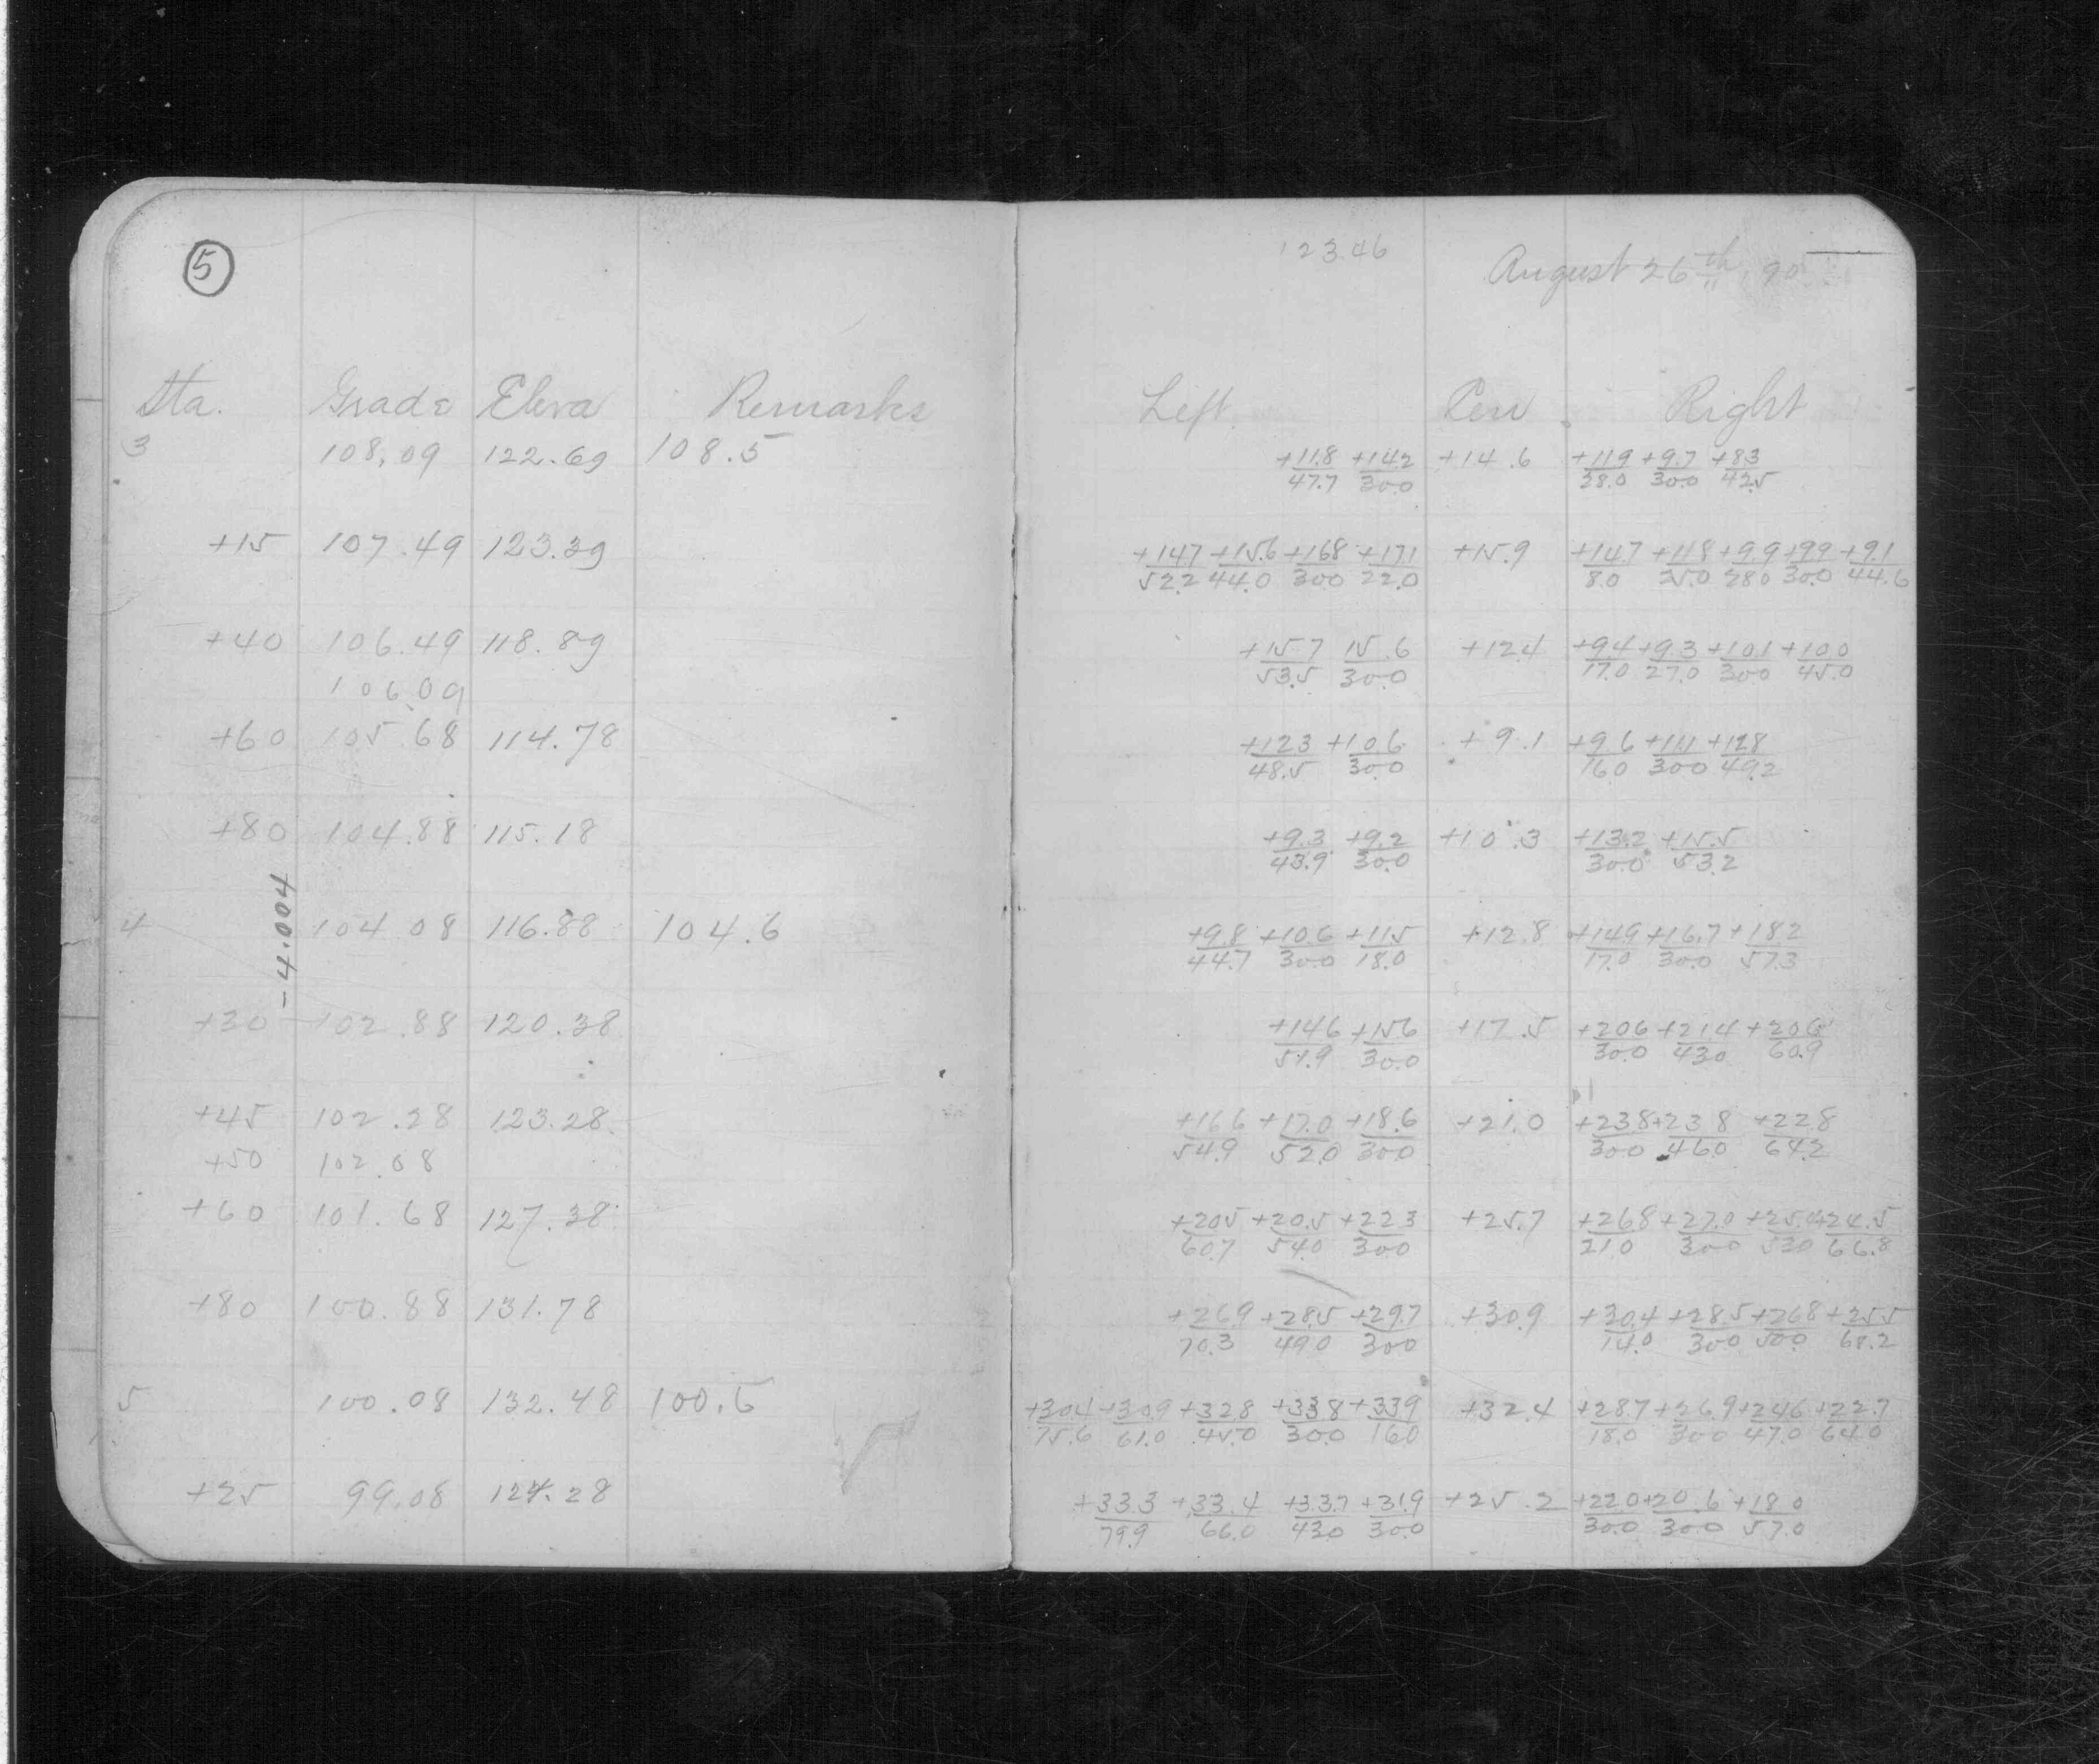 5
12346
August 26th 90
Sta. Grade Eleva Remarks Left Cen Right
3 108.09 122.69 108.5 +11.8/47.7 +14.2/30.0 +14.6 +11.9/28.0 +9.7/30.0 +8.3/42.5
+15 107.49 123.39 +14.7/52.2 +15.6/44.0 +16.8/30.0 +17.1/22.0 +15.9 +14.7/8.0 +11.8/25.0 +9.9/28.0 +9.9/30.0 +9.1/44.6
+40 106.49 118.89 +15.7/53.5 15.6/30.0 +12.4 +9.4/17.0 +9.3/27.0 +10.1/30.0 +10.0/45.0
106.09
+60 105.68 114.78 +12.3/48.5 +10.6/30.0 +9.1 +9.6/16.0 +11.1/30.0 +12.8/49.2
+80 104.88 115.18 +9.3/43.9 +9.2/30.0 +10.3 +13.2/30.0 +15.5/53.2
-4.004
4 104.08 116.88 104.6 +9.8/44.7 +10.6/30.0 +11.5/18.0 +12.8 +14.9/17.0 +16.7/30.0 +18.2/57.3
+30 102.88 120.38 +14.6/51.9 +15.6/30.0 +17.5 +20.6/30.0 +21.4/43.0 +20.6/60.9
+45 102.28 123.28 +16.6/54.9 +17.0/52.0 +18.6/30.0 +21.0 +23.8/30.0 +23.8/46.0 +22.8/64.2
+50 102.08
+60 101.68 127.38 +20.5/60.7 +20.5/54.0 +22.3/30.0 +25.7 +26.8/21.0 +27.0/30.0 +25.4/53.0 +24.5/66.8
+80 100.88 131.78 +26.9/70.3 +28.5/49.0 +29.7/30.0 +30.9 +30.4/14.0 +28.5/30.0 +26.8/50.0 +25.5/68.2
5 100.08 132.48 100.5 +30.4/75.6 +30.9/61.0 +32.8/45.0 +33.8/30.0 +33.9/16.0 +32.4 +28.7/18.0 +26.9/30.0 +24.6/47.0 +22.7/64.0
+25 99.08 124.28 +33.3/79.9 +33.4/66.0 +33.7/43.0 +31.9/30.0 +25.2 +22.0/30.0 +20.6/30.0 +18.0/57.0